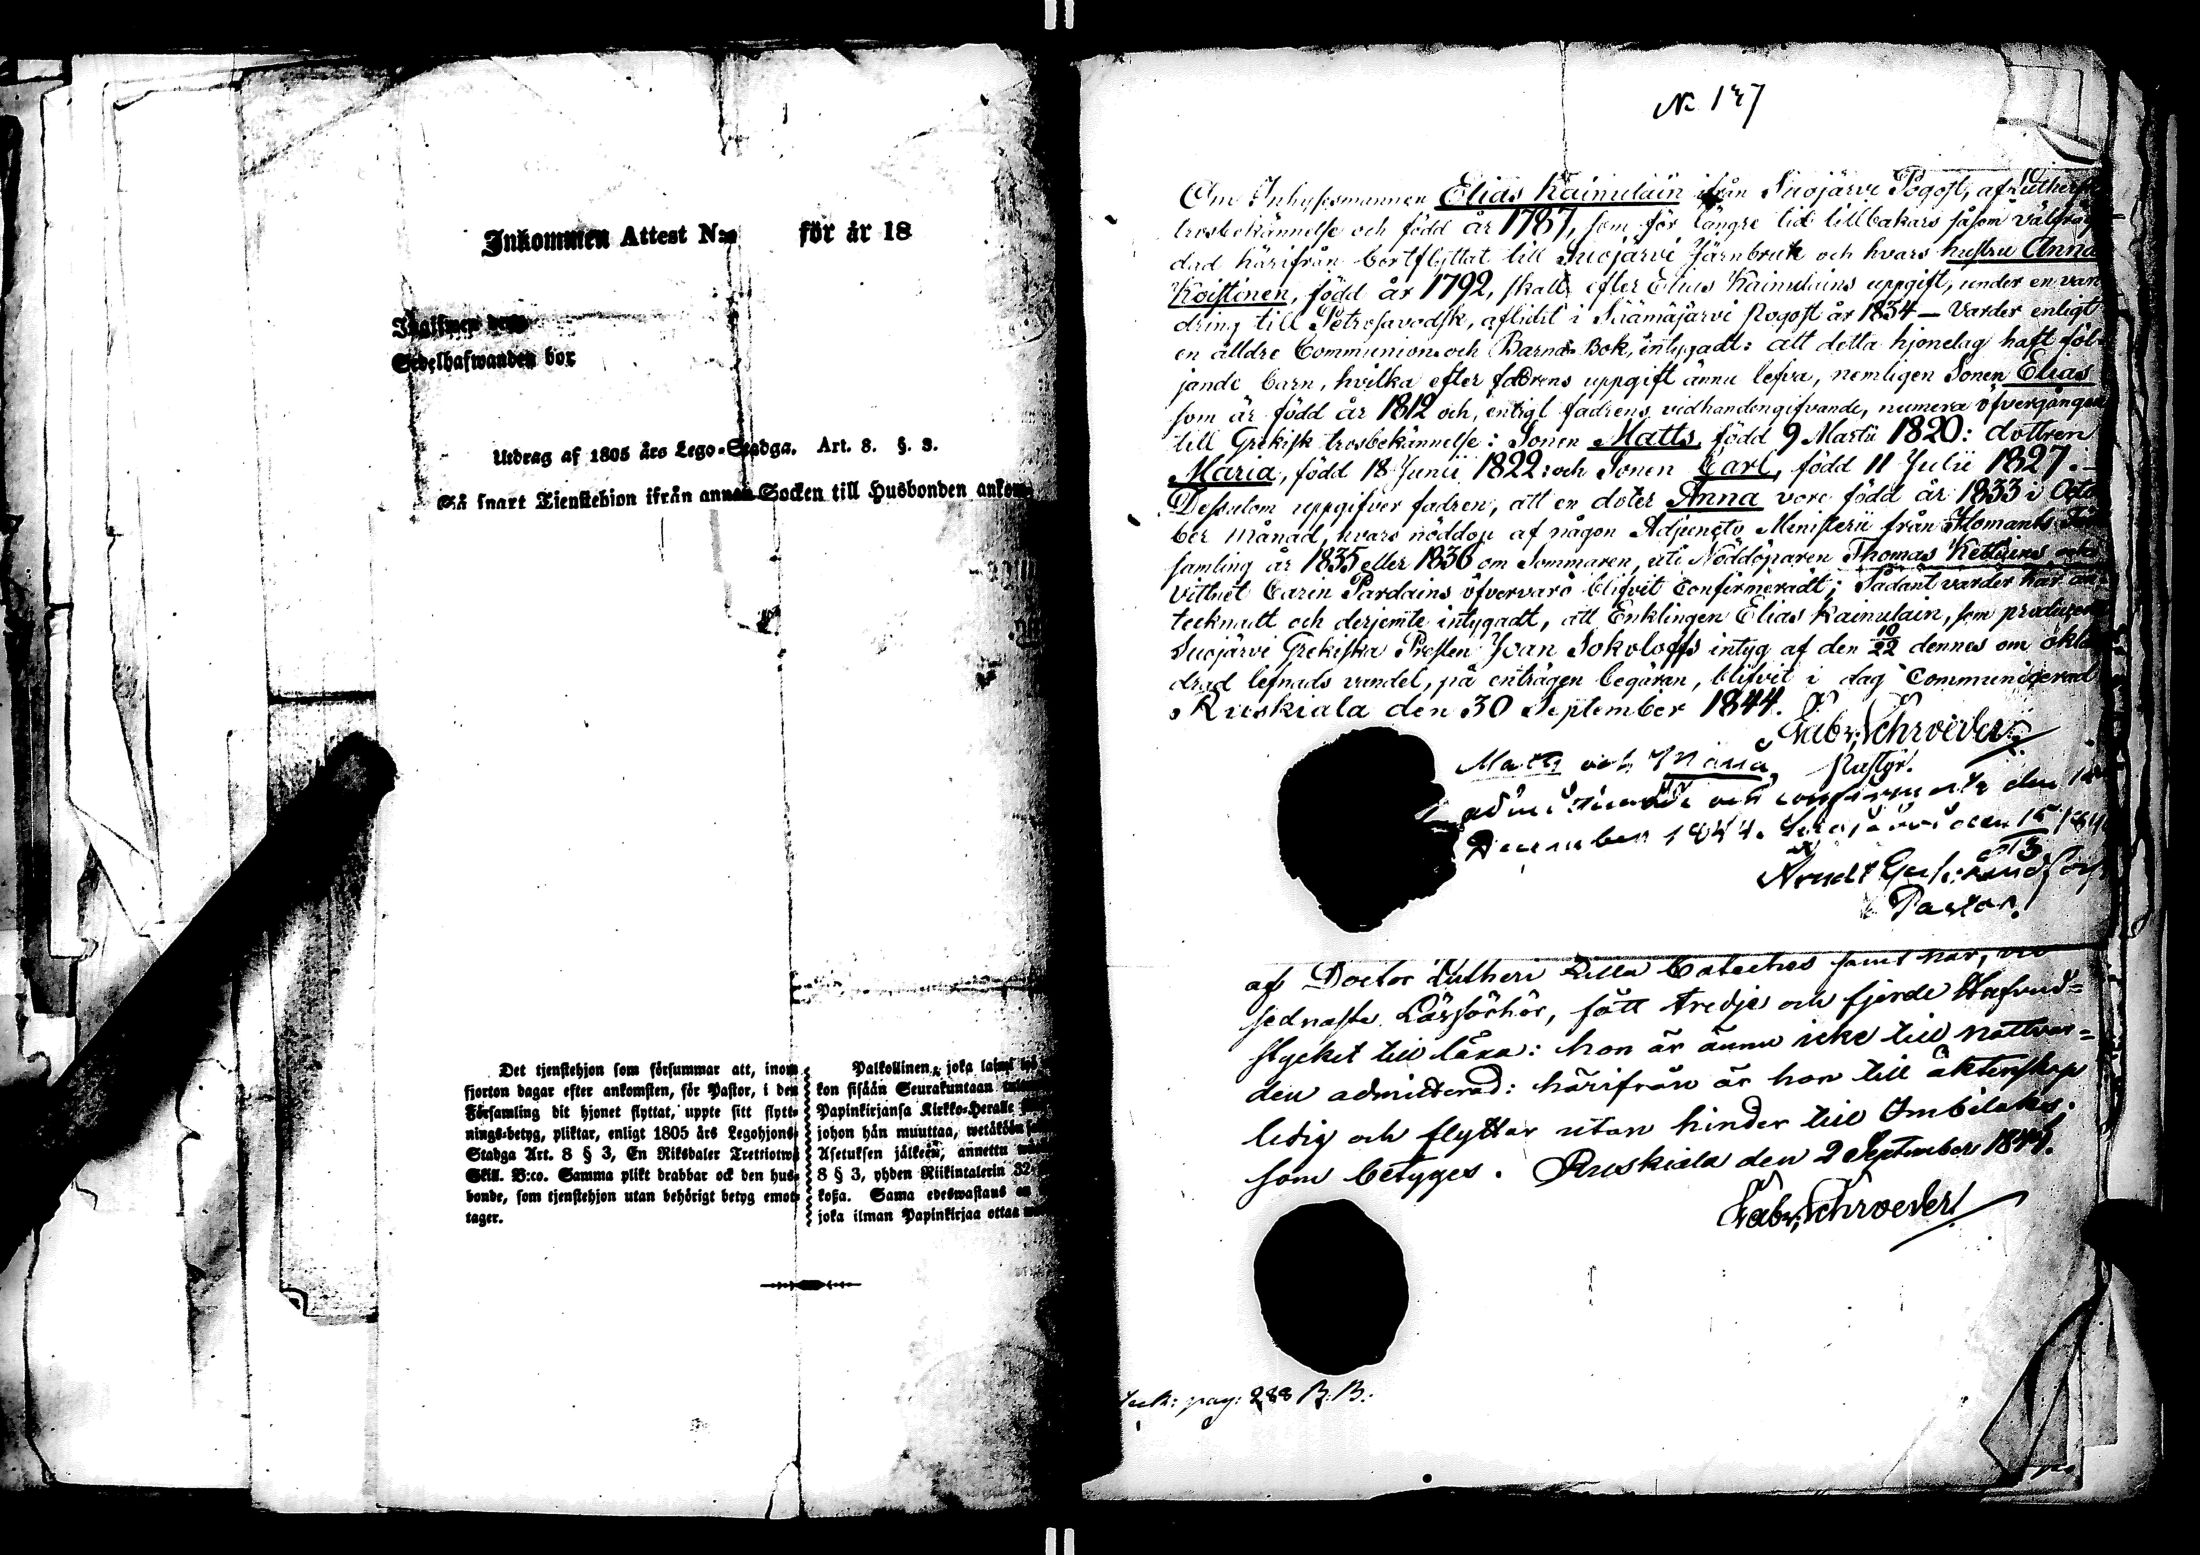 Inkommen Attest N:o för år 18
Sedelhafwanden bor
Utdrag af 1805 års Lego-Stadga. Art. 8. §. 3.
Så snart Tienstehion ifrån annan Socken till Husbonden ankom
Det tjenstehjon som försummar att, inom
fjorton dagar efter ankomsten, för Pastor, i den
Församling dit hjonet flyttat, uppte sitt flytt-
nings-betyg, pliktar, enligt 1805 års Legohjons-
Stadga Art. 8 § 3, En Riksdaler Trettiotwå
Skill. B:co. Samma plikt drabbar ock den hus-
bonde, som tjenstehjon utan behörigt betyg emot-
tager.
Palkollinen, joka
kon sisään Seurakuntaan
Papinkirjansa Kirkko-Heralle
johon hän muuttaa, wetäköön
Asetuksen jälkeen, annettu
8 § 3, yhden Riikintalerin 32
koßa. Sama edeswastaus on
joka ilman Papinkirjaa ottaa
No 137
Om Inhysesmannen Elias Kainulain ifrån Suojärvi Pogost, af Luthersk
trosbekännelse och född år 1787, som för längre tid tillbakars såsom välfräg-
dad härifrån bortflyttat till Suojärvi Järnbruk och hvars hustru Anna
Koistinen, född år 1792, skall efter Elias Kainulains uppgift, under en van-
dring till Petrosavodsk, aflidit i Säämäjärvi Pogost år 1834 — Varder enligt
en älldre Communion- och Barna-Bok, intygadt: att detta hjonelag haft föl-
jande barn, hvilka efter fadrens uppgift ännu lefva, nemligen Sonen Elias
som är född år 1812 och, enligt fadrens vidhandengifvande, numera öfvergången
till Grekisk trosbekännelse: Sonen Matts, född 9 Martii 1820: dottren
Maria, född 18 Junii 1822: och Sonen Carl, född 11 Julii 1827.—
Dessutom uppgifver fadren, att en doter Anna vore född år 1833 i Octo
ber månad, hvars nöddop af någon Adjuncto Ministerii från Ilomants För
samling år 1835 eller 1836 om Sommaren, uti Nöddöparen Thomas
vittnet Carin Pardains öfvervaro blifvit Confirmeradt; Sådant varder här an-
tecknadt och derjemte intygadt, att Enklingen Elias Kainulain, som producerat
Suojärvi Grekiska Presten Ivan Sokoloffs intyg af den 10/22 dennes om oklan
drad lefnads vandel, på enträgen begäran, blifvit i dag Communicerad
Ruskiala den 30 September 1844.
Gabr. Schroeder
Pastor.
Matts och Maria
admitterade och confirmerte den
December 1844. Suojärvi den 15
Pastor.
af Doctor Lutheri Lilla Cateches samt har, vid
sednaste Läsförhör, fått tredje och fjerde Hafvud=
stycket till läxa: hon är ännu icke till nattvar=
den admitterad: härifrån är hon till äktenskap
ledig och flyttar utan hinder till Ombilaks;
som betyges. Ruskiala den 2 September 1844.
Gabr. Schroeder
pag: 288 B.B.